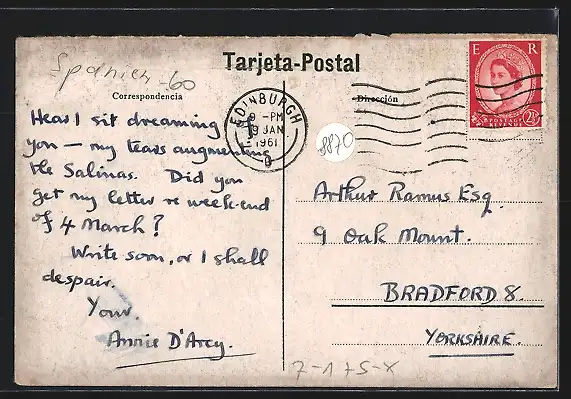 Spanien -60
Tarjeta-Postal
Correspondencia
Dirección
E R
POSTAGE
REVENUE
2½
EDINBURGH
9 - PM
9 JAN
1961
8870
Hear I sit dreaming of
you — my tears augmenting
the Salinas. Did you
get my letter re week-end
of 4 March?
Write soon, or I shall
despair.
Your.
Annie D'Arcy.
Arthur Ramus Esq.
9 Oak Mount.
BRADFORD 8.
YORKSHIRE.